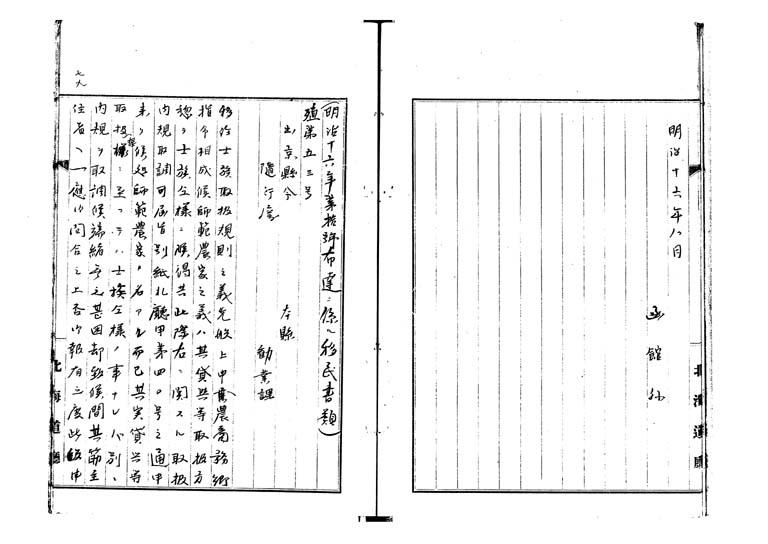 明治十六年八月
函館外
北海道廳
(明治十六年第拾號布達ニ係ル移民書類)
殖第五三号
出京縣令
隨行席
本縣
勧業課
移住士族取扱規則之義先般上申農商務卿
指令相成候師範農家之義ハ其貸与等取扱方
惣テ士族仝様ニ候得共此際右ニ関スル取扱
内規取調可届旨別紙札廳甲第四〇号之通申
来リ候処師範農家ノ名アル而已其実貸与等
取扱様ニ至ツテハ士族仝様ノ事ナレバ別ニ
内規ヲ取調候端緒無之甚困却致候間其筋主
任者ヘ一應御問合之上否御報有之度此段申
北海道廳
七九